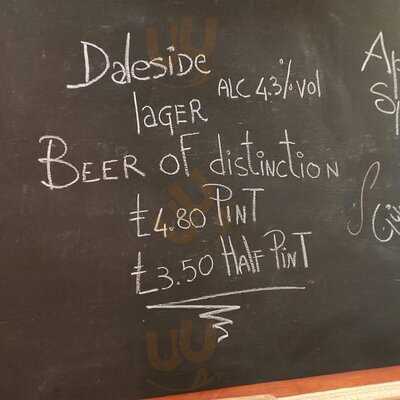 Daleside
lager ALC 4.3% vol
BEER OF distinction
£4.80 PINT
£3.50 HALF PINT